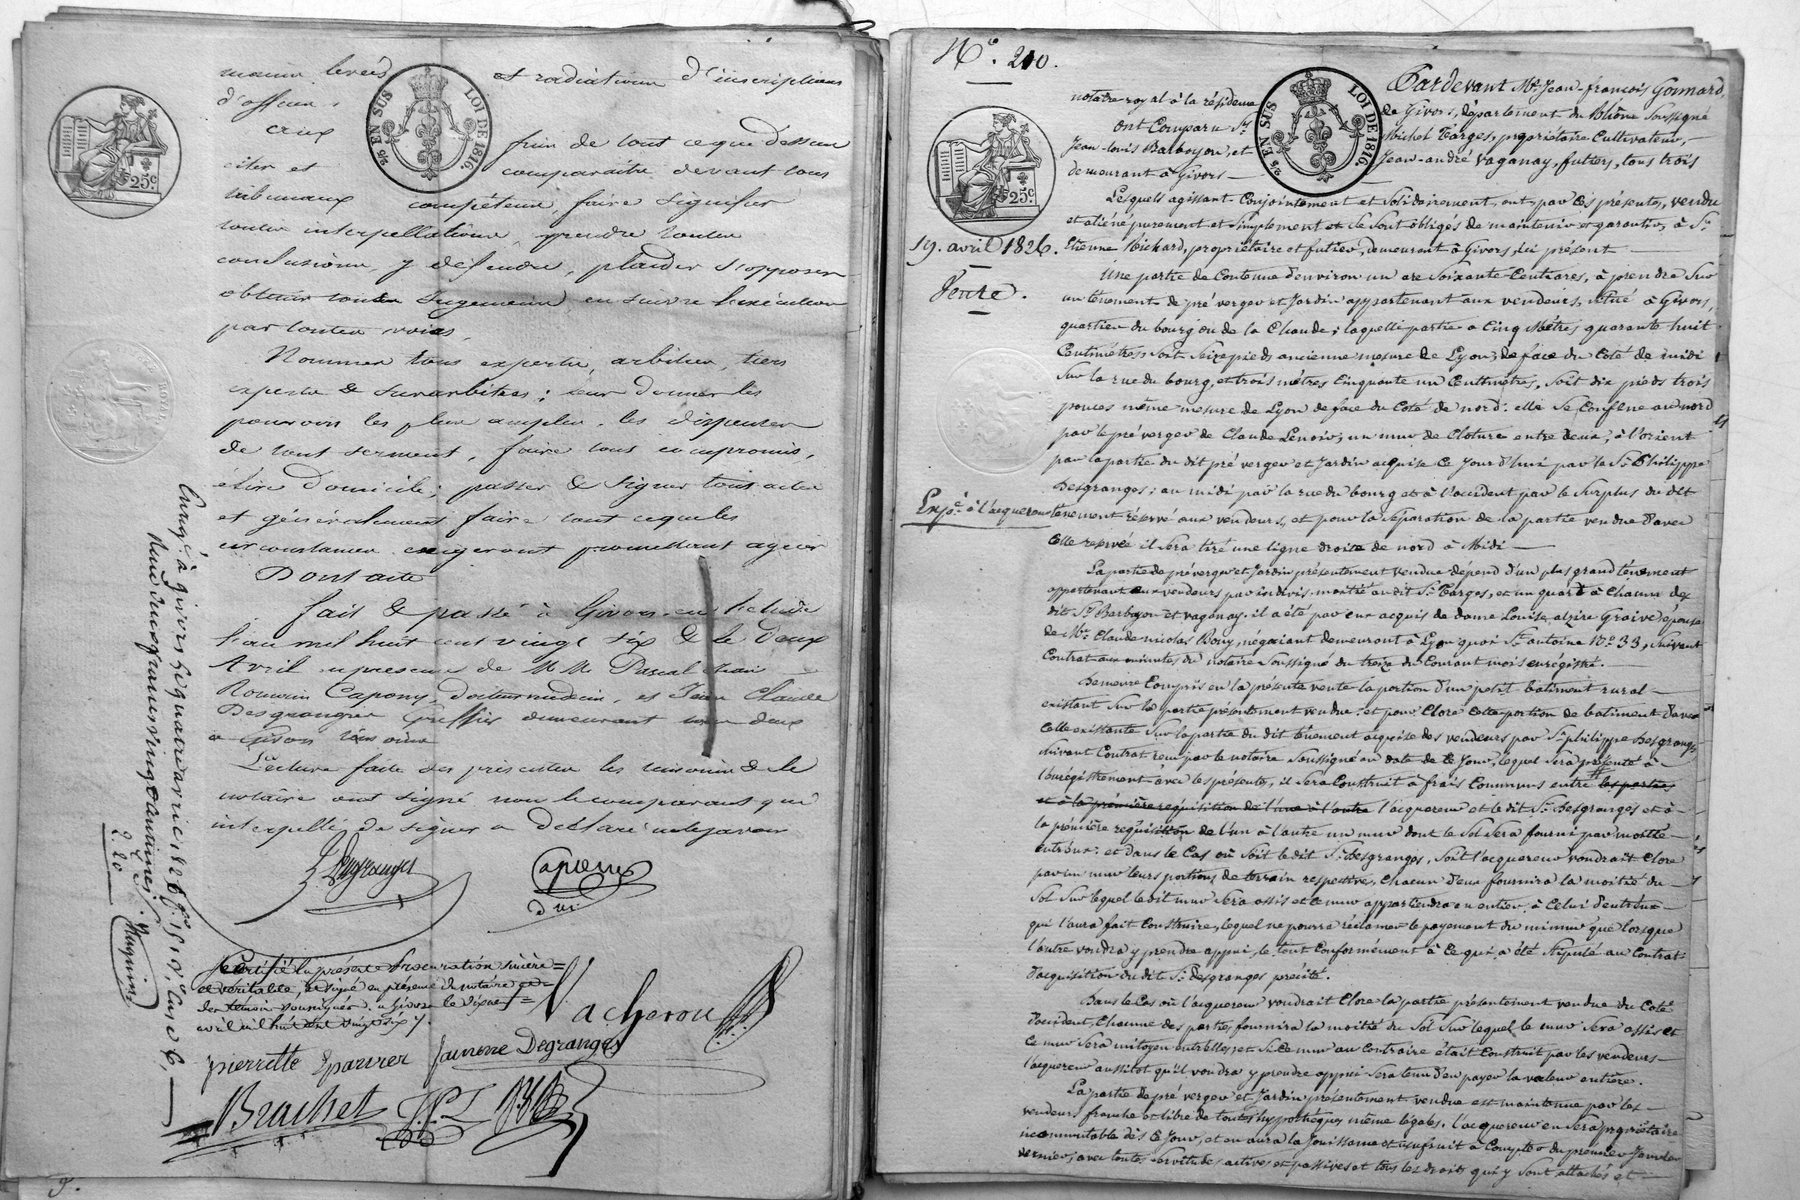 main levées et radiation d'inscriptions
d'office
ceux
fruir de tout ce que dessus
citer et comparaître devant tous
tribunaux compétens, faire signifier
toutes interpellations, prendre toutes
conclusions, y défendre, plaider s'opposer
obtenir tous Jugemens en suivre l'exécution
par toutes voies,
Nommer tous experts, arbitres, tiers
experts & surarbitres; leur donner les
pouvoirs les plus amples, les dispenser
de tout serment, faire tous compromis,
élire Domicile; passer & signer tous actes
et généralement faire tout ce que les
circonstances exigeront promettant agréer
Dont acte
fait & passé à Givors en l'étude
l'an mil huit cent vingt six & le deux
Avril en présence de MM Pascal Jean
Romain Capony, docteur médecin, et Jean Claude
Desgranges Greffier demeurant tous deux
à Givors témoins
Lecture faite des présentes les témoins & le
notaire ont signé non le comparant qui
interpellé de signer a déclaré ne le savoir
Desgranges
Capony
d. m.
Certifié la présente Procuration sincère
et véritable, et signé en présence du notaire et
des témoins soussignés. à Givors le
avril mil huit cent vingt six
Vacherou
pierrette Eparvier
Degranges
Brachet
Enregé à givors le quatre avril 1826 fo 151 Vo, Case 6,
Reçu deux francs vingt centimes
2
20
2.20
25c
2/5 EN SUS
LOI DE 1816
No. 210.
Pardevant Me Jean-françois Gonnard,
notaire royal à la résidence de Givors, département du Rhône soussigné
ont Comparu Sr. Michel Targes, propriétaire Cultivateur,
Jean-louis Barboyon, et Jean-andré Vaganay, futiers, tous trois
demeurant à Givors
Lesquels agissant Conjointement et Solidairement, ont, par Ces présentes, vendu
et aliéné purement et simplement et se sont obligés de maintenir et garantir, à Sr.
19. avril 1826.
Etienne Richard, propriétaire et futier, demeurant à Givors, ici présent
Vente.
Une partie de Contenue d'environ un are Soixante Centiares, à prendre Sur
un tènement de pré verger et Jardin appartenant aux vendeurs, situé à Givors,
quartier du bourg ou de la Chaude; laquelle partie a Cinq Mètres quarante huit
Centimètres soit seize pieds ancienne mesure de Lyon, de face du Coté de midi
sur la rue du bourg, et trois mètres Cinquante un Centimètres, soit dix pieds trois
pouces même mesure de Lyon de face du Coté de nord: elle se Confine au nord
par le pré verger de Claude Lenoir, un mur de Cloture entre deux, à l'orient
par la partie du dit pré verger et Jardin acquise Ce Jour d'hui par le Sr. Philippe
Desgranges; au midi par la rue du bourg et à l'occident par le Surplus du dit
Expon. à l'acquereur
tènement réservé aux vendeurs, et pour la séparation de la partie vendue d'avec
Celle réservée il sera tiré une ligne droite de nord à Midi
La partie de pré verger et Jardin présentement vendue dépend d'un plus grand tènement
appartenant aux vendeurs par indivis moitié au dit Sr. Targes, et un quart à Chacun des
dits Srs. Barboyon et vaganay. il a été par eux acquis de dame Louise alzire Graive épouse
de Mr. Claude nicolas Bony, négociant demeurant à Lyon quai St. antoine No. 33, suivant
Contrat aux minutes du notaire soussigné du treize du Courant mois enregistré.
Demeure Compris en la présente vente la portion d'un petit batiment rural
existant sur la partie présentement vendue; et pour Clore Cette portion de batiment d'avec
Celle existante sur la partie du dit tènement acquise des vendeurs par Sr. philippe Desgranges,
suivant Contrat reçu par le notaire soussigné en date de Ce Jour, lequel sera présenté à
l'enregistrement avec les présentes, il sera Construit à frais Communs entre les parties
et à la première requisition de l'une à l'autre l'acquereur et le dit Sr. Desgranges et à
la première requisition de l'un à l'autre un mur dont le Sol sera fourni par moitié
entr'eux: et dans le Cas où soit le dit Sr. Desgranges, soit l'acquereur voudrait Clore
par un mur leurs portions de terrain respectives, Chacun d'eux fournira la moitié du
Sol Sur lequel le dit mur sera assis et Ce mur appartiendra en entier à Celui d'entr'eux
qui l'aura fait Construire, lequel ne pourra réclamer le payement du mi mur que lorsque
l'autre voudra y prendre appui, le tout Conformément à Ce qui a été Stipulé au Contrat
d'acquisition du dit Sr. Desgranges précité.
Dans le Cas où l'acquereur voudrait Clore la partie présentement vendue du Coté
d'occident, Chacune des parties fournira la moitié du Sol Sur lequel le mur sera assis et
Ce mur sera mitoyen entr'elles, et si Ce mur au Contraire était Construit par les vendeurs
l'acquereur aussitot qu'il voudra y prendre appui sera tenu d'en payer la valeur entière.
La partie de pré verger et Jardin présentement vendue est maintenue par les
vendeurs franche et libre de toutes hypothèques même légales. l'acquereur en sera propriétaire
incommutable dès Ce Jour, et en aura la Jouissance et usufruit à Compter du premier Janvier
dernier, avec toutes servitudes actives et passives et tous les droits qui y sont attachés et
25c
2/5 EN SUS
LOI DE 1816